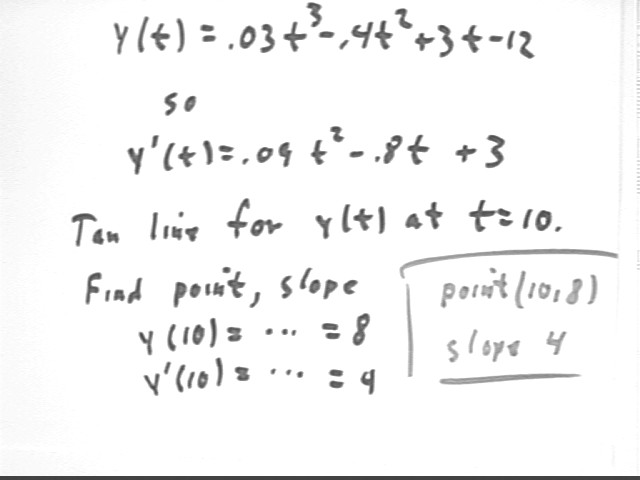 y(t) = .03t³ - .4t² + 3t - 12
so
y'(t) = .09 t² - .8t + 3
Tan line for y(t) at t = 10.
Find point, slope
y(10) = ... = 8
y'(10) = ... = 4
point (10, 8)
slope 4